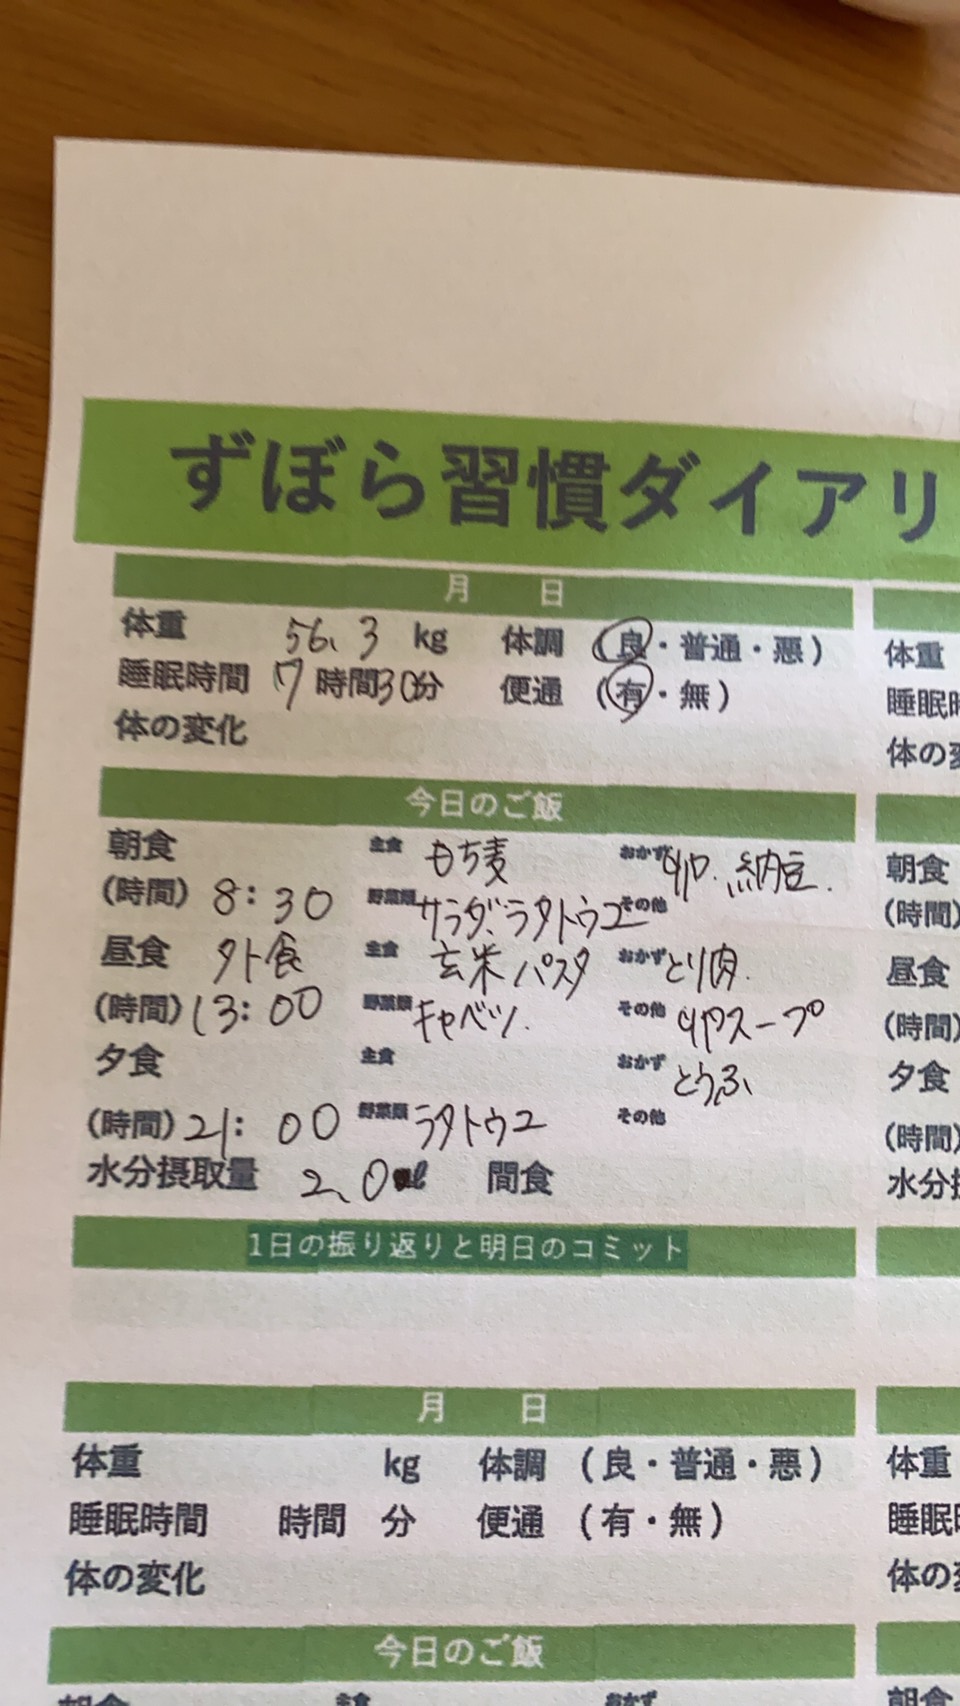 ずぼら習慣ダイアリ
月 日
体重 56.3 kg 体調 (良・普通・悪)
睡眠時間 7時間30分 便通 (有・無)
体の変化
今日のご飯
朝食 主食 もち麦 おかず 卵、納豆.
(時間) 8:30 野菜類 サラダ、ラタトウユ その他
昼食 外食 主食 玄米パスタ おかず とり肉.
(時間) 13:00 野菜類 キャベツ. その他 卵スープ
夕食 主食 おかず とうふ
(時間) 21:00 野菜類 ラタトウユ その他
水分摂取量 2.0 ℓ 間食
1日の振り返りと明日のコミット
月 日
体重 kg 体調 (良・普通・悪)
睡眠時間 時間 分 便通 (有・無)
体の変化
今日のご飯
朝食 主食 おかず
体重
睡眠
体の
朝食
(時間)
昼食
(時間)
夕食
(時間)
水分
体重
睡眠
体の
朝食